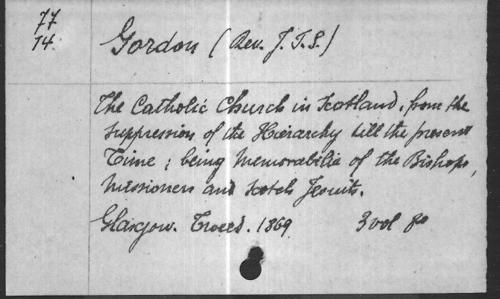 77
14.
Gordon (Rev. J. F. S.)
The Catholic Church in Scotland, from the
suppression of the Hierarchy till the present
Time; being Memorabilia of the Bishops,
Missioners and Scotch Jesuits.
Glasgow. Tweed. 1869. 3 vol 8o